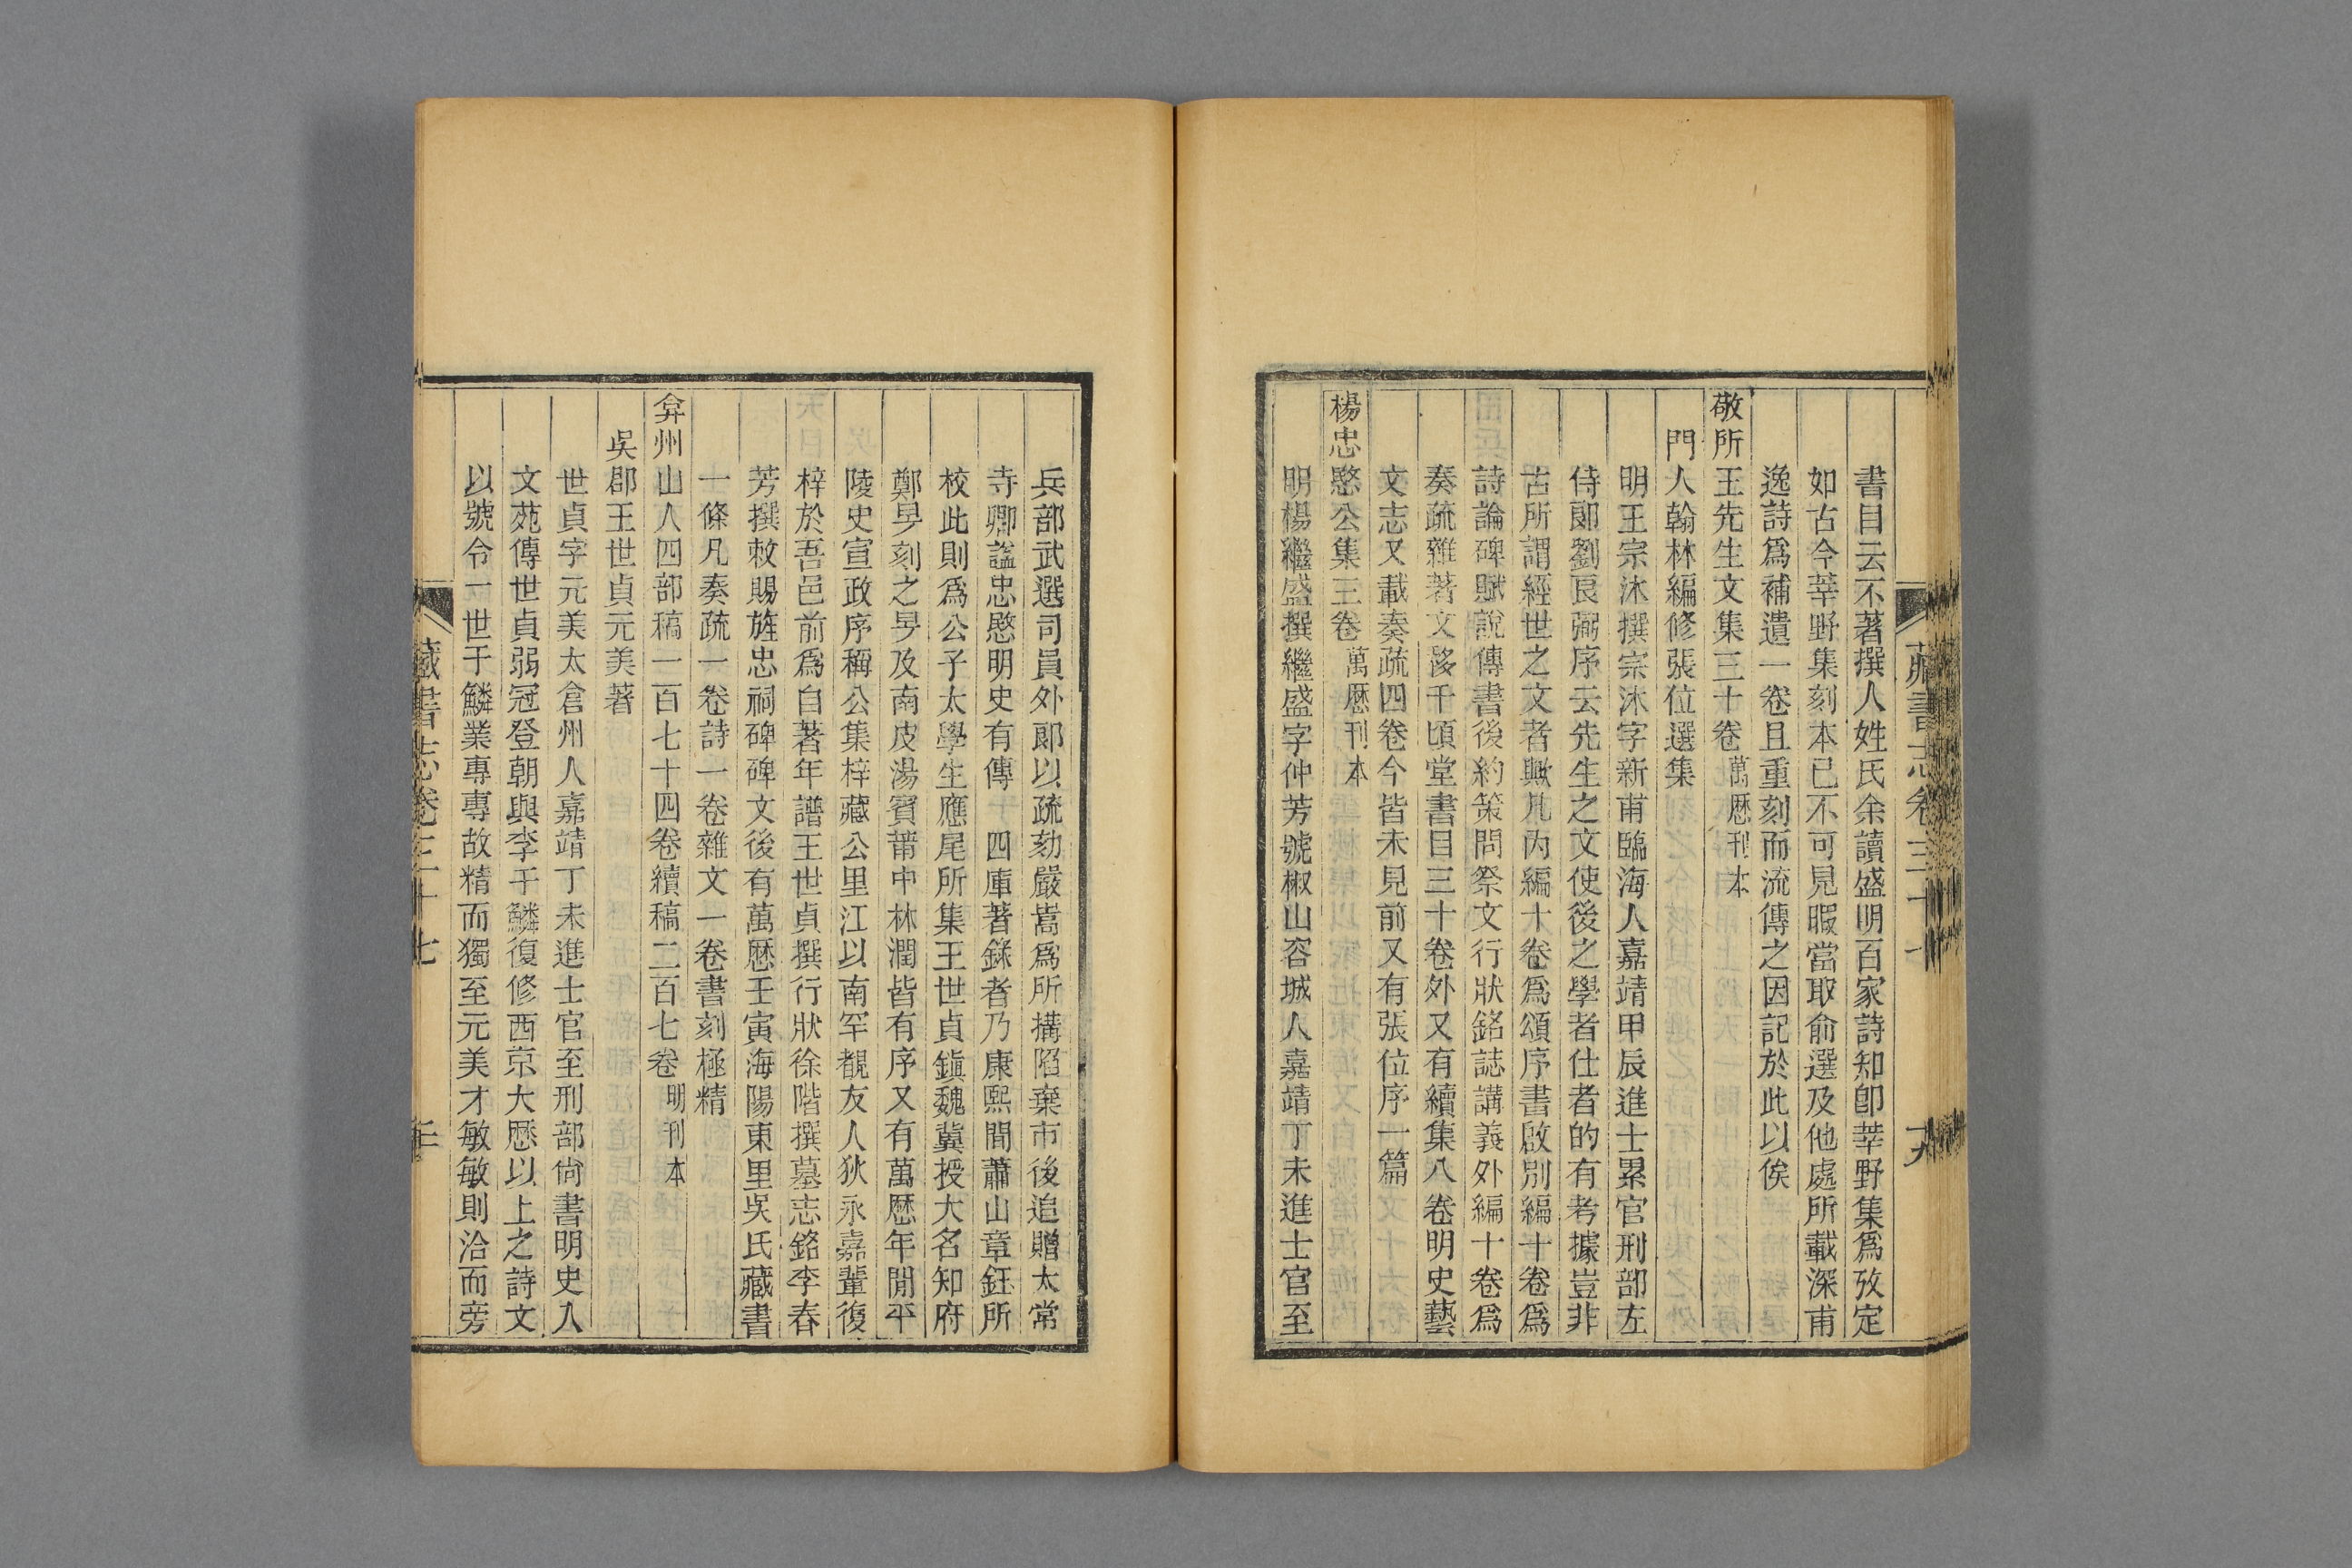 藏書志卷三十七
十九
書目云不著撰人姓氏余讀盛明百家詩知卽莘野集爲攷定
如古今莘野集刻本已不可見暇當取俞選及他處所載深甫
逸詩爲補遺一卷且重刻而流傳之因記於此以俟
敬所王先生文集三十卷 萬厯刊本
門人翰林編修張位選集
明王宗沐撰宗沐字新甫臨海人嘉靖甲辰進士累官刑部左
侍郞劉良弼序云先生之文使後之學者仕者的有考據豈非
古所謂經世之文者歟凡內編十卷爲頌序書啟別編十卷爲
詩論碑賦說傳書後約策問祭文行狀銘誌講義外編十卷爲
奏疏雜著文移千頃堂書目三十卷外又有續集八卷明史藝
文志又載奏疏四卷今皆未見前又有張位序一篇
楊忠愍公集三卷 萬厯刊本
明楊繼盛撰繼盛字仲芳號椒山容城人嘉靖丁未進士官至
兵部武選司員外郞以疏劾嚴嵩爲所搆陷棄市後追贈太常
寺卿諡忠愍明史有傳 四庫著錄者乃康熙閒蕭山章鈺所
校此則爲公子太學生應尾所集王世貞鎭魏冀授大名知府
鄭旻刻之旻及南皮湯賓莆中林潤皆有序又有萬厯年閒平
陵史宣政序稱公集梓藏公里江以南罕覩友人狄永嘉輩復
梓於吾邑前爲自著年譜王世貞撰行狀徐階撰墓志銘李春
芳撰敕賜旌忠祠碑碑文後有萬厯壬寅海陽東里吳氏藏書
一條凡奏疏一卷詩一卷雜文一卷書刻極精
弇州山人四部稿一百七十四卷續稿二百七卷 明刊本
吳郡王世貞元美著
世貞字元美太倉州人嘉靖丁未進士官至刑部尚書明史入
文苑傳世貞弱冠登朝與李于鱗復修西京大厯以上之詩文
以號令一世于鱗業專專故精而獨至元美才敏敏則洽而旁
藏書志卷三十七